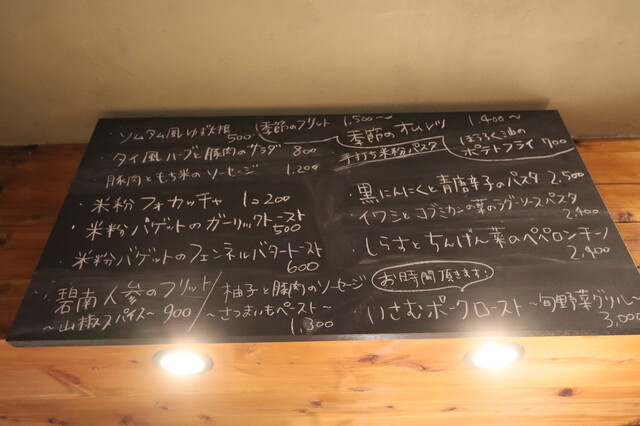 ・ソムタム風ゆで大根 500
・タイ風ハーブと豚肉のサラダ 800
・豚肉ともち米のソーセージ 1,200
・米粉フォカッチャ 1コ200
・米粉バゲットのガーリックトースト 500
・米粉バゲットのフェンネルバタートースト 600
・碧南人参のフリット ～山椒スパイス～ 900
柚子と豚肉のソーセージ ～さつまいもペースト～ 1,300
季節のフリット 1,500～
季節のオムレツ 1,400～
ほうろく油のポテトフライ 700
手打ち米粉パスタ
・黒にんにくと青唐辛子のパスタ 2,500
・イワシとコブミカンの葉のラグーソースパスタ 2,400
・しらすとちんげん菜のペペロンチーノ 2,400
お時間頂きます！
いさむポークロースト ～旬野菜グリル～ 3,000